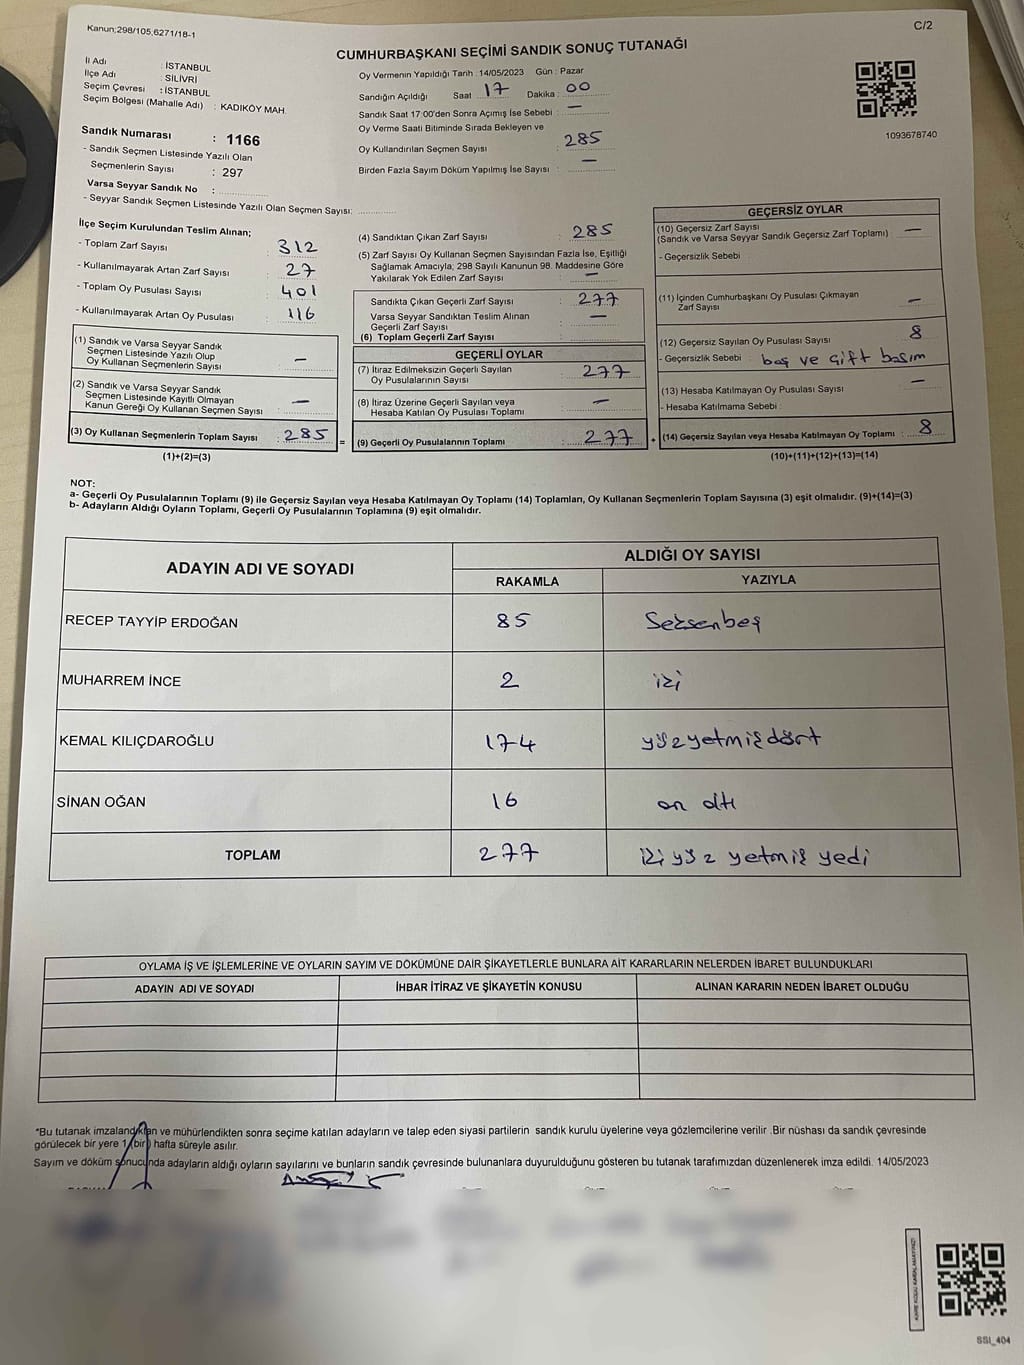 Kanun;298/105,6271/18-1
C/2
CUMHURBAŞKANI SEÇİMİ SANDIK SONUÇ TUTANAĞI
İl Adı : İSTANBUL
İlçe Adı : SİLİVRİ
Seçim Çevresi : İSTANBUL
Seçim Bölgesi (Mahalle Adı) : KADIKÖY MAH.
Sandık Numarası : 1166
- Sandık Seçmen Listesinde Yazılı Olan
Seçmenlerin Sayısı : 297
Varsa Seyyar Sandık No :
- Seyyar Sandık Seçmen Listesinde Yazılı Olan Seçmen Sayısı:
Oy Vermenin Yapıldığı Tarih : 14/05/2023 Gün : Pazar
Sandığın Açıldığı Saat 17 Dakika : 00
Sandık Saat 17:00'den Sonra Açımış İse Sebebi : —
Oy Verme Saati Bitiminde Sırada Bekleyen ve
Oy Kullandırılan Seçmen Sayısı : 285
Birden Fazla Sayım Döküm Yapılmış İse Sayısı : —
1093678740
İlçe Seçim Kurulundan Teslim Alınan;
- Toplam Zarf Sayısı : 312
- Kullanılmayarak Artan Zarf Sayısı : 27
- Toplam Oy Pusulası Sayısı : 401
- Kullanılmayarak Artan Oy Pusulası : 116
(1) Sandık ve Varsa Seyyar Sandık
Seçmen Listesinde Yazılı Olup
Oy Kullanan Seçmenlerin Sayısı : —
(2) Sandık ve Varsa Seyyar Sandık
Seçmen Listesinde Kayıtlı Olmayan
Kanun Gereği Oy Kullanan Seçmen Sayısı : —
(3) Oy Kullanan Seçmenlerin Toplam Sayısı : 285 =
(1)+(2)=(3)
(4) Sandıktan Çıkan Zarf Sayısı : 285
(5) Zarf Sayısı Oy Kullanan Seçmen Sayısından Fazla İse, Eşitliği
Sağlamak Amacıyla; 298 Sayılı Kanunun 98. Maddesine Göre
Yakılarak Yok Edilen Zarf Sayısı : —
Sandıkta Çıkan Geçerli Zarf Sayısı : 277
Varsa Seyyar Sandıktan Teslim Alınan
Geçerli Zarf Sayısı : —
(6) Toplam Geçerli Zarf Sayısı :
GEÇERLİ OYLAR
(7) İtiraz Edilmeksizin Geçerli Sayılan
Oy Pusulalarının Sayısı : 277
(8) İtiraz Üzerine Geçerli Sayılan veya
Hesaba Katılan Oy Pusulası Toplamı : —
(9) Geçerli Oy Pusulalarının Toplamı : 277 +
GEÇERSİZ OYLAR
(10) Geçersiz Zarf Sayısı : —
(Sandık ve Varsa Seyyar Sandık Geçersiz Zarf Toplamı)
- Geçersizlik Sebebi :
(11) İçinden Cumhurbaşkanı Oy Pusulası Çıkmayan
Zarf Sayısı : —
(12) Geçersiz Sayılan Oy Pusulası Sayısı : 8
- Geçersizlik Sebebi : boş ve çift basım
(13) Hesaba Katılmayan Oy Pusulası Sayısı : —
- Hesaba Katılmama Sebebi :
(14) Geçersiz Sayılan veya Hesaba Katılmayan Oy Toplamı : 8
(10)+(11)+(12)+(13)=(14)
NOT:
a- Geçerli Oy Pusulalarının Toplamı (9) ile Geçersiz Sayılan veya Hesaba Katılmayan Oy Toplamı (14) Toplamları, Oy Kullanan Seçmenlerin Toplam Sayısına (3) eşit olmalıdır. (9)+(14)=(3)
b- Adayların Aldığı Oyların Toplamı, Geçerli Oy Pusulalarının Toplamına (9) eşit olmalıdır.
ADAYIN ADI VE SOYADI ALDIĞI OY SAYISI
RAKAMLA YAZIYLA
RECEP TAYYİP ERDOĞAN 85 Seksenbeş
MUHARREM İNCE 2 iki
KEMAL KILIÇDAROĞLU 174 yüzyetmişdört
SİNAN OĞAN 16 on altı
TOPLAM 277 iki yüz yetmiş yedi
OYLAMA İŞ VE İŞLEMLERİNE VE OYLARIN SAYIM VE DÖKÜMÜNE DAİR ŞİKAYETLERLE BUNLARA AİT KARARLARIN NELERDEN İBARET BULUNDUKLARI
ADAYIN ADI VE SOYADI İHBAR İTİRAZ VE ŞİKAYETİN KONUSU ALINAN KARARIN NEDEN İBARET OLDUĞU
*Bu tutanak imzalandıktan ve mühürlendikten sonra seçime katılan adayların ve talep eden siyasi partilerin sandık kurulu üyelerine veya gözlemcilerine verilir .Bir nüshası da sandık çevresinde
görülecek bir yere 1 (bir) hafta süreyle asılır.
Sayım ve döküm sonucunda adayların aldığı oyların sayılarını ve bunların sandık çevresinde bulunanlara duyurulduğunu gösteren bu tutanak tarafımızdan düzenlenerek imza edildi. 14/05/2023
SSI_404